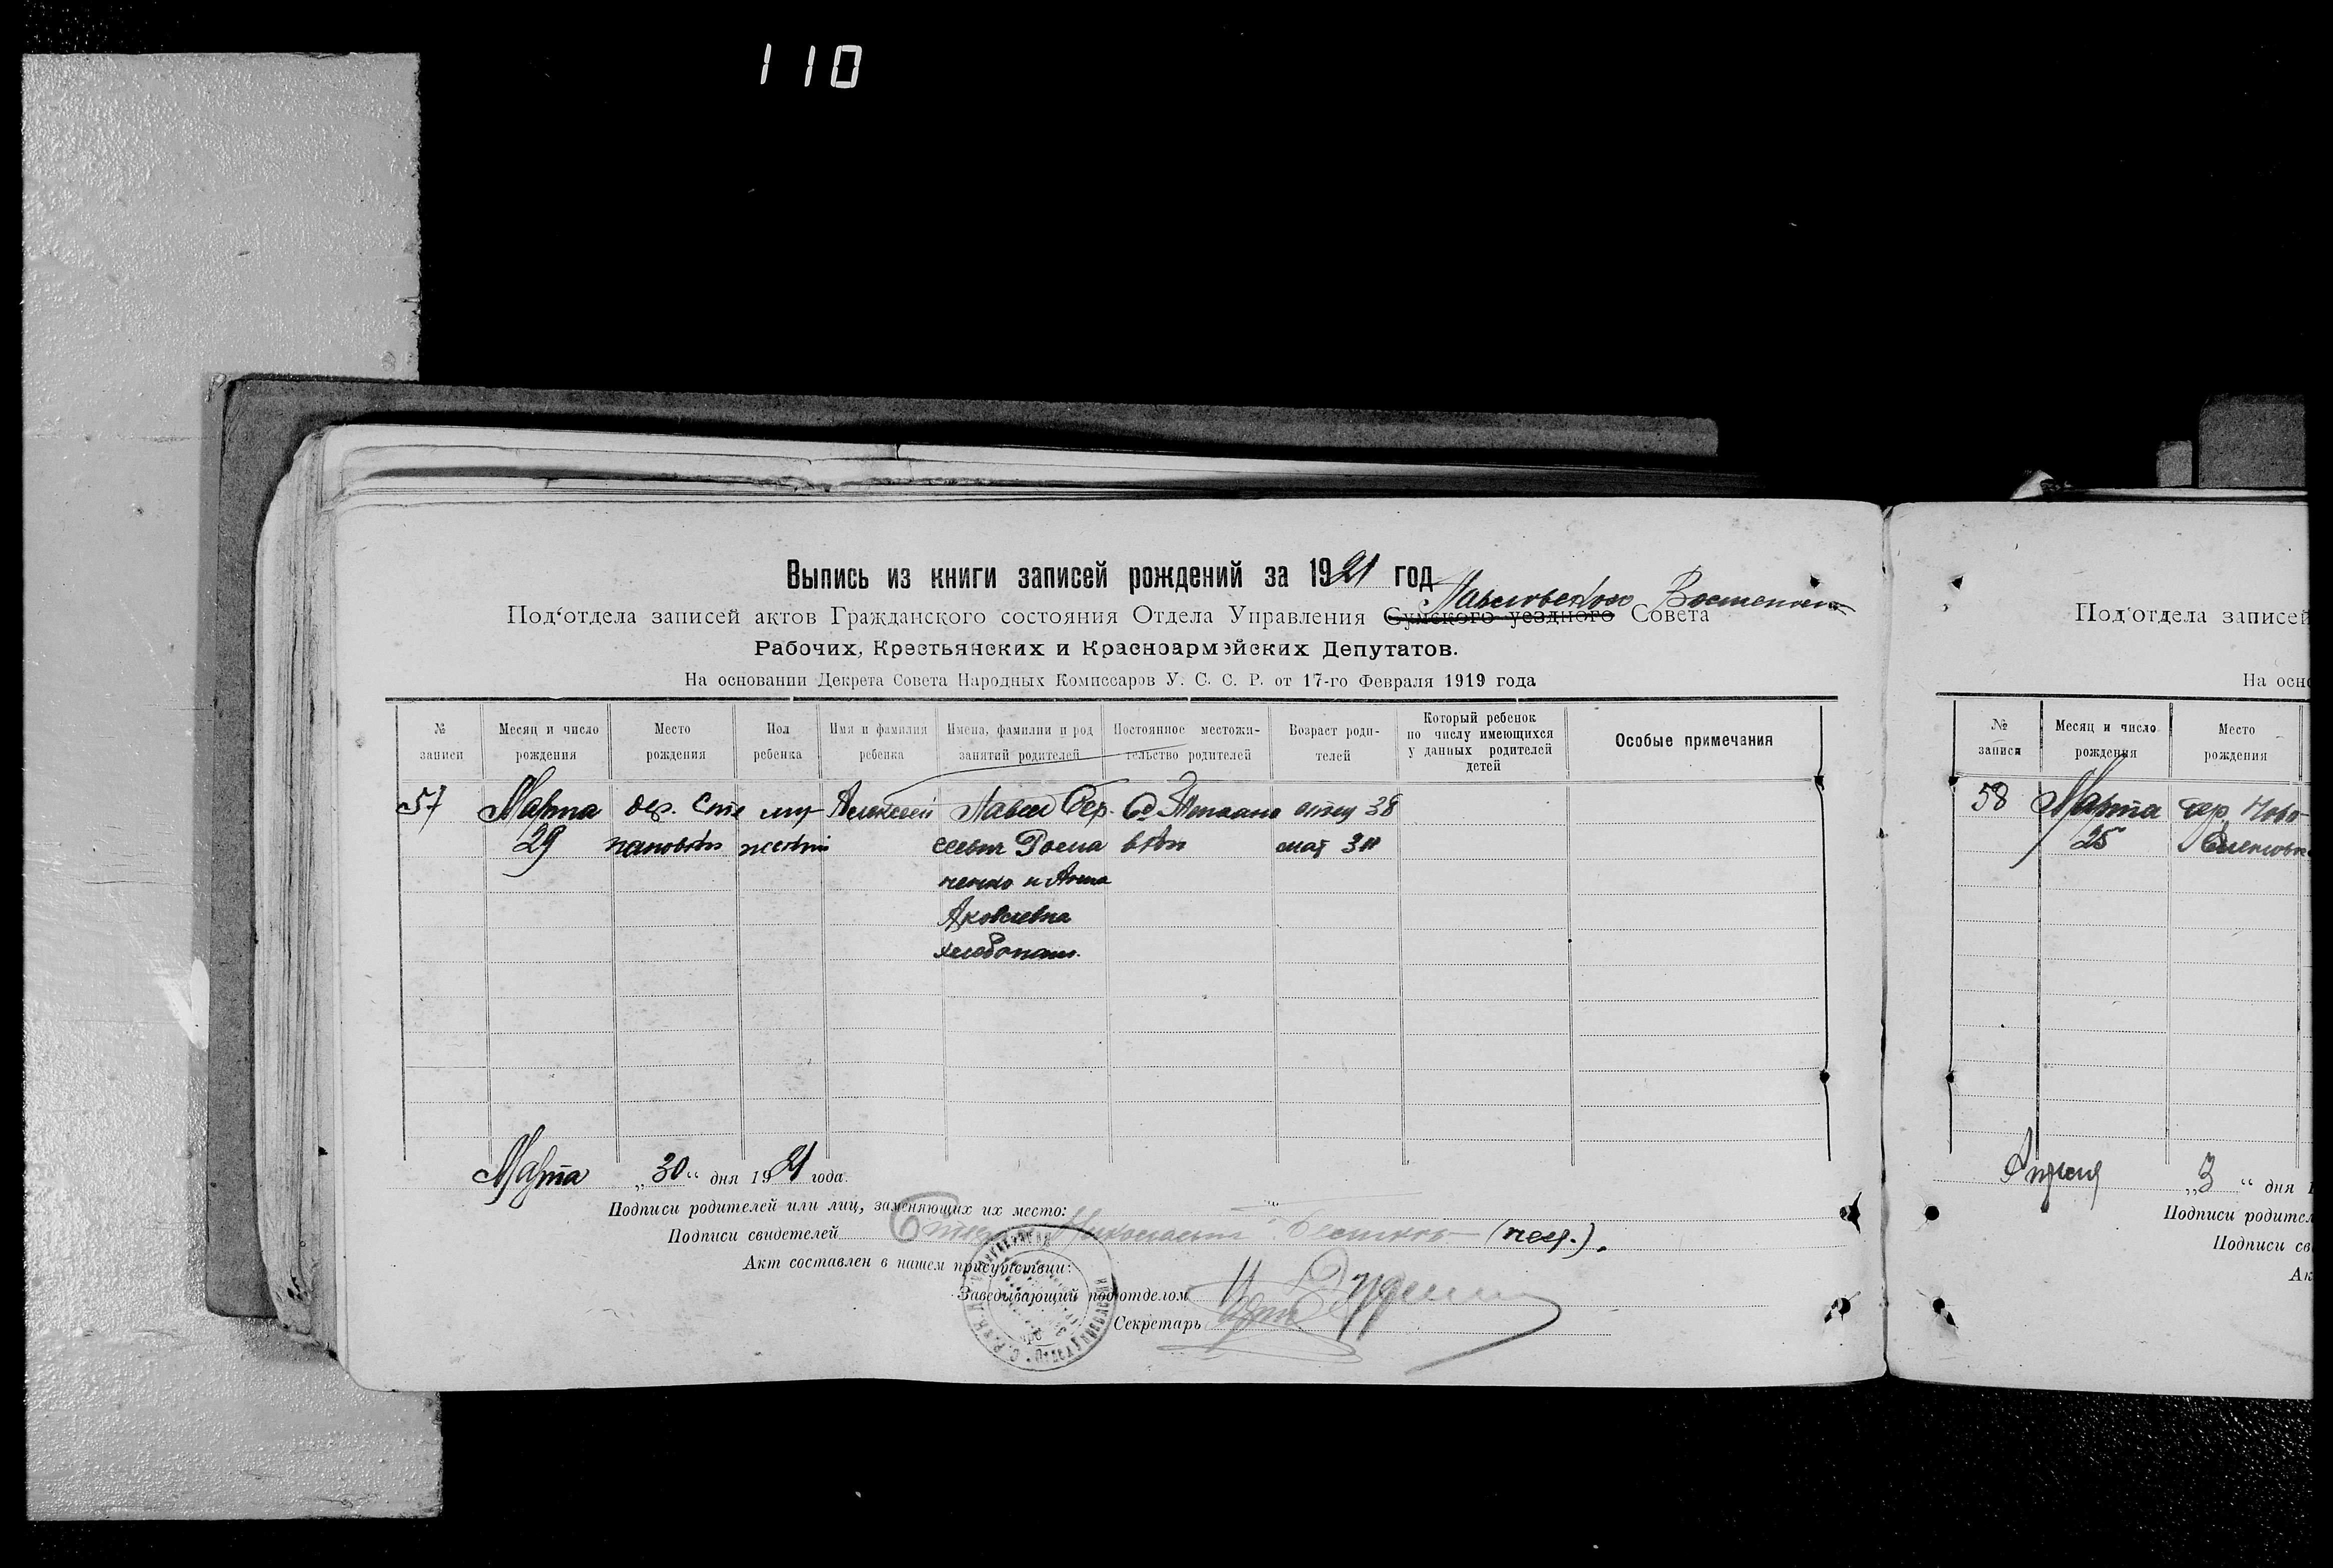 110
Выпись из книги записей рождений за 1921 год
Под‘отдела записей актов Гражданского состояния Отдела Управления Сумского уездного Совета
Рабочих, Крестьянских и Красноармейских Депутатов.
На основании Декрета Совета Народных Комиссаров У. С. С. Р. от 17-го Февраля 1919 года
№ записи
Месяц и число рождения
Место рождения
Пол ребенка
Имя и фамилия ребенка
Имена, фамилии и род занятий родителей
Постоянное местожительство родителей
Возраст родителей
Который ребенок по числу имеющихся у данных родителей детей
Особые примечания
57
Марта
29
дер. Сте
пановки
муж
ской
Алексей
Павел
Рома
ченко и Анна
Яковлевна
хлебопаш.
отец 38
мать
Марта „30“ дня 1921 года.
Подписи родителей или лиц, заменяющих их место:
Подписи свидетелей Николаевич (негр.).
Акт составлен в нашем присутствии:
Заведывающий под‘отделом
Секретарь
Под‘отдела записей
На осно
№ записи
Месяц и число рождения
Место рождения
58
Марта
25
дер. Ново-
Апреля „3“ дня 1
Подписи родител
Подписи св
Ак